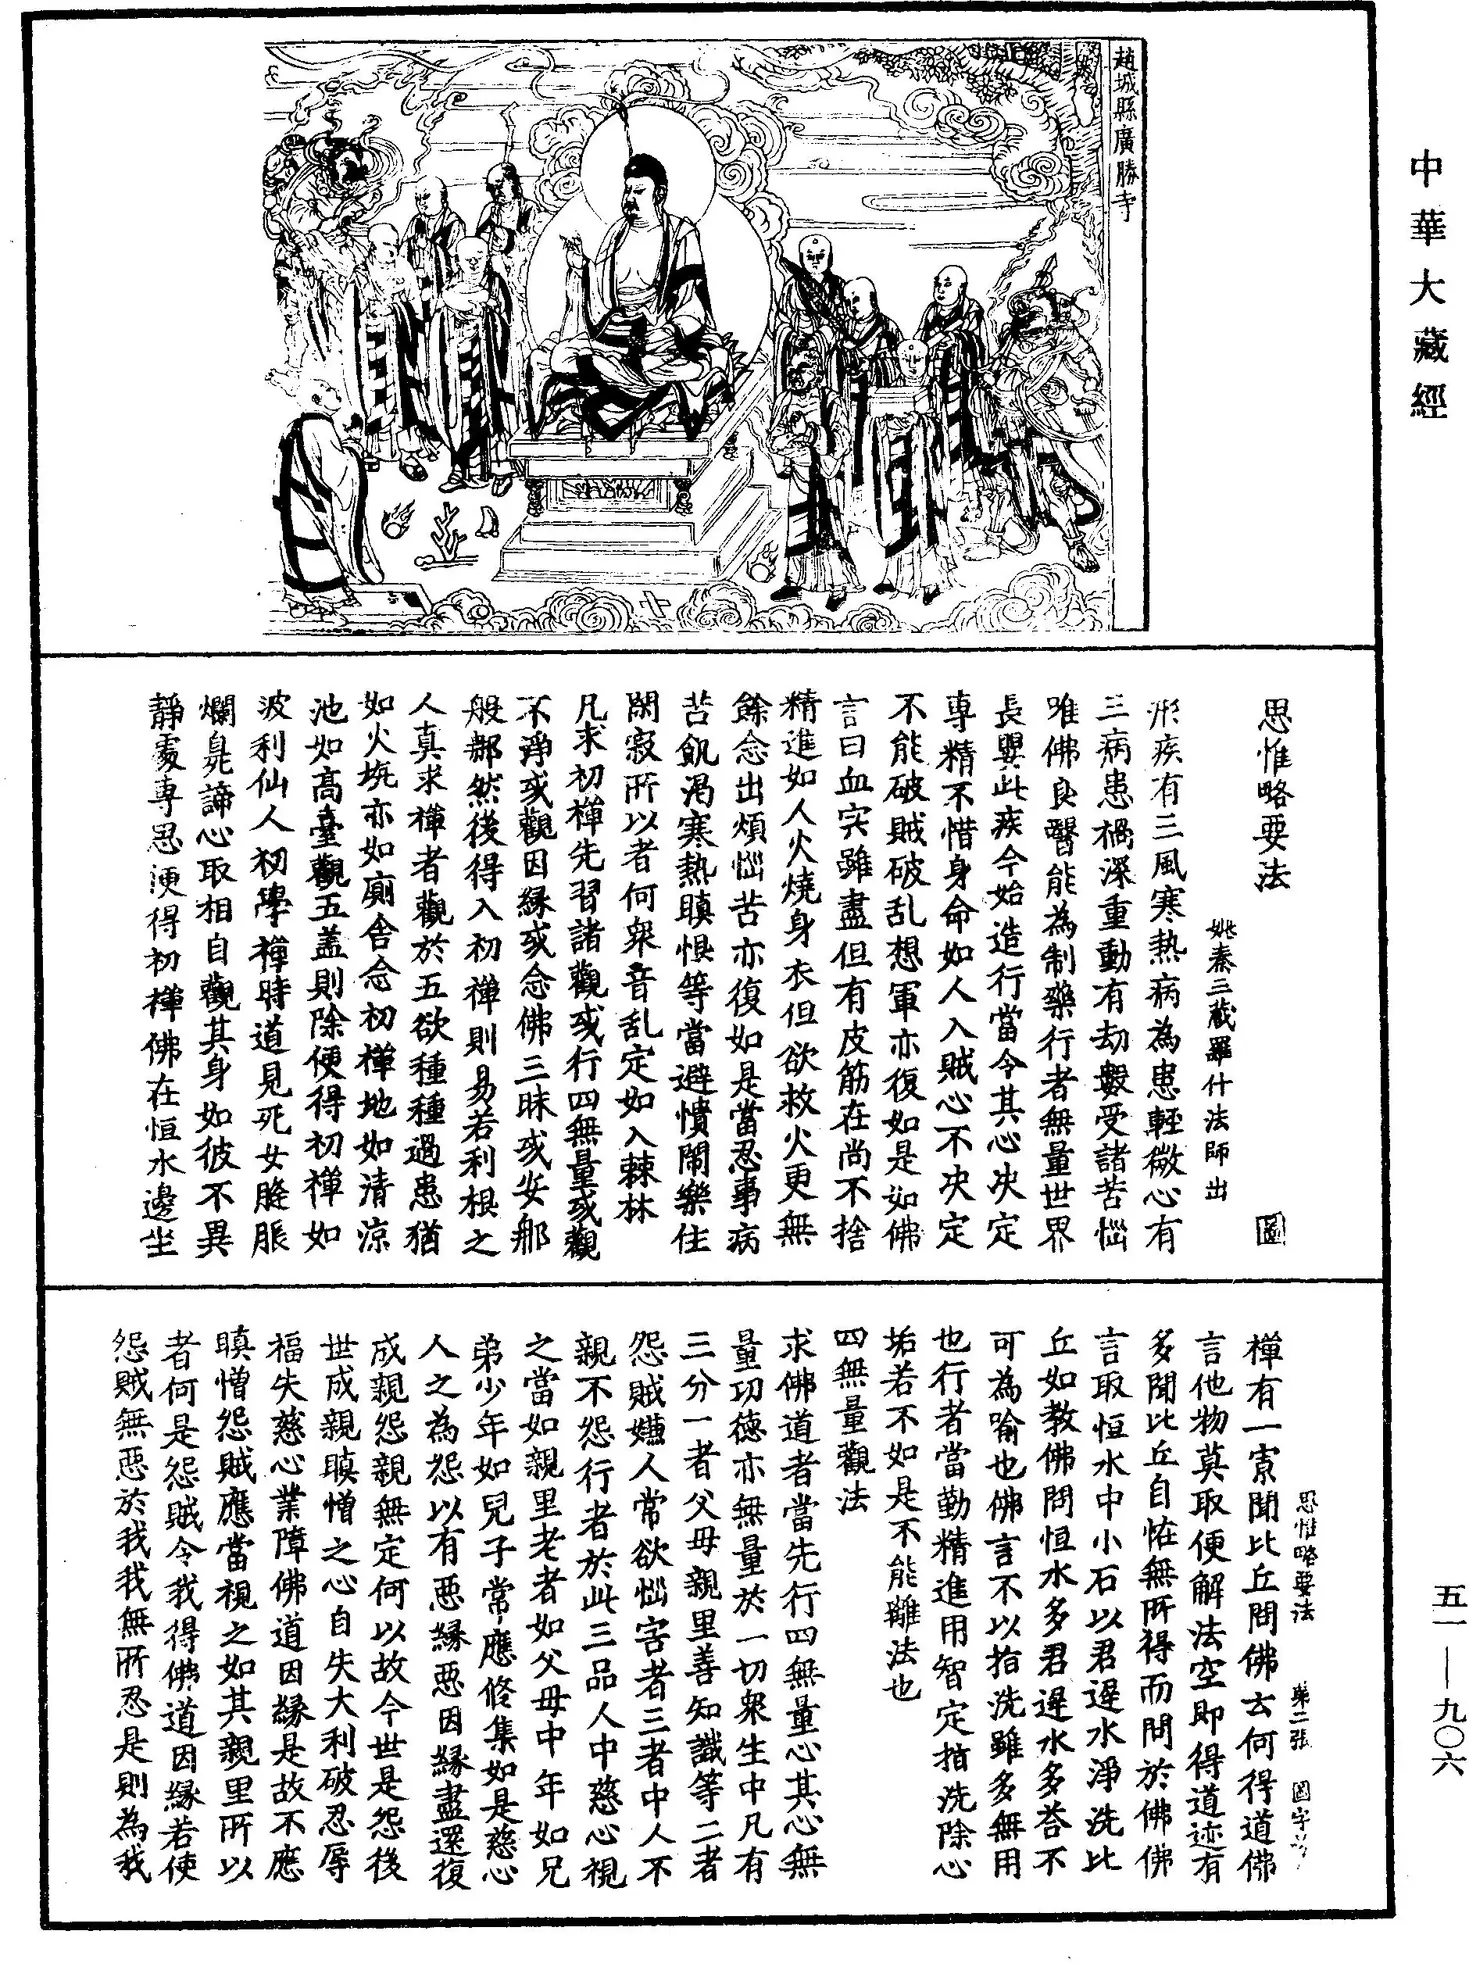 中華大藏經
趙城縣廣勝寺
思惟略要法 圖
姚秦三藏羅什法師出
形疾有三風寒熱病為患輕微心有
三病患禍深重動有劫數受諸苦惱
唯佛良醫能為制藥行者無量世界
長嬰此疾今始造行當令其心決定
專精不惜身命如人入賊心不決定
不能破賊破乱想軍亦復如是如佛
言曰血宍雖盡但有皮筋在尚不捨
精進如人火燒身衣但欲救火更無
餘念出煩惱苦亦復如是當忍事病
苦飢渴寒熱瞋恨等當避憒閙樂住
閑寂所以者何衆音乱定如入棘林
凡求初禪先習諸觀或行四無量或觀
不淨或觀因緣或念佛三昧或安那
般那然後得入初禪則易若利根之
人真求禪者觀於五欲種種過患猶
如火坑亦如廁舍念初禪地如清涼
池如高臺觀五盖則除便得初禪如
波利仙人初學禪時道見死女膖脹
爛臰諦心取相自觀其身如彼不異
靜處專思便得初禪佛在恒水邊坐
思惟略要法 第二張 圖字
禪有一寡聞比丘問佛云何得道佛
言他物莫取便解法空即得道迹有
多聞比丘自恠無所得而問於佛佛
言取恒水中小石以君遟水淨洗比
丘如教佛問恒水多君遟水多荅不
可為喻也佛言不以指洗雖多無用
也行者當勤精進用智定指洗除心
垢若不如是不能離法也
四無量觀法
求佛道者當先行四無量心其心無
量功德亦無量於一切衆生中凡有
三分一者父母親里善知識等二者
怨賊嫌人常欲惱害者三者中人不
親不怨行者於此三品人中慈心視
之當如親里老者如父母中年如兄
弟少年如兒子常應修集如是慈心
人之為怨以有惡緣惡因緣盡還復
成親怨親無定何以故今世是怨後
世成親瞋憎之心自失大利破忍辱
福失慈心業障佛道因緣是故不應
瞋憎怨賊應當視之如其親里所以
者何是怨賊令我得佛道因緣若使
怨賊無惡於我我無所忍是則為我
五一—九〇六